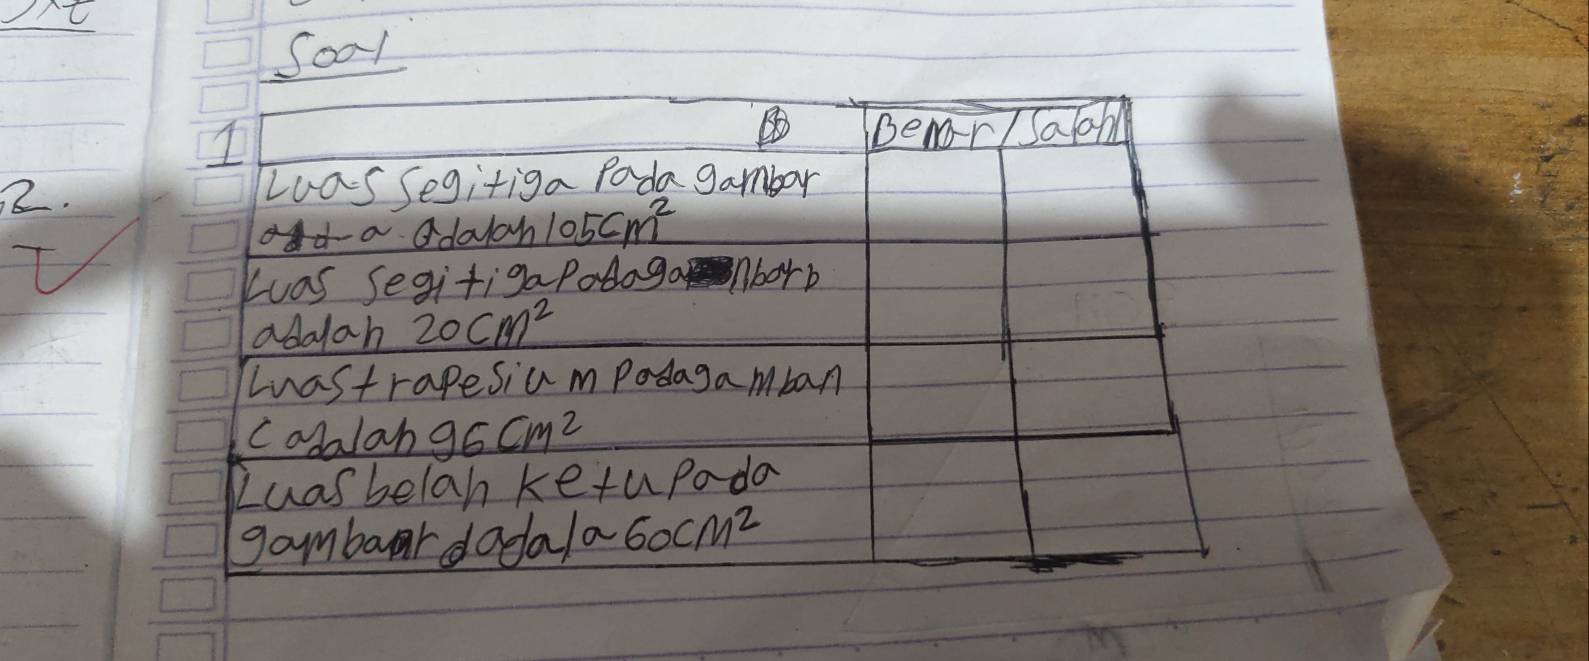 Soal
1
Benar / Salah
Luas segitiga Pada gambar
a. adalah 105 cm²
Luas segitiga Pada ga nbar b
adalah 20 cm²
Luas trapesium Pada gamban
c adalah 96 cm²
Luas belah ketu Pada
gambar d adala 60 cm²
2.